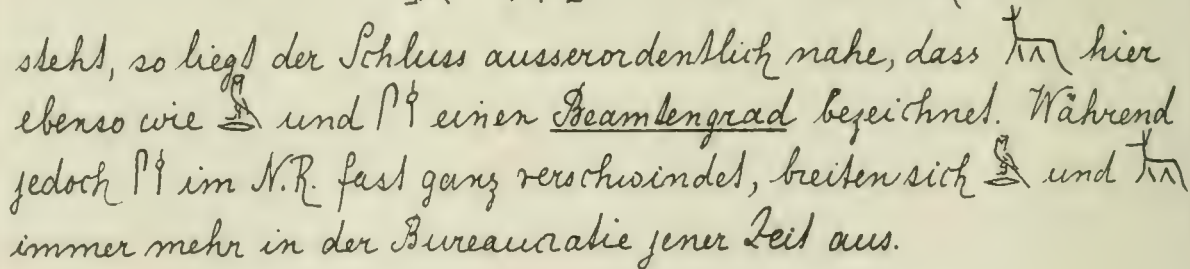 steht, so liegt der Schluss ausserordentlich nahe, dass hier
ebenso wie und einen Beamtengrad bezeichnet. Während
jedoch im N.R. fast ganz verschwindet, breiten sich und
immer mehr in der Bureaucratie jener Zeit aus.